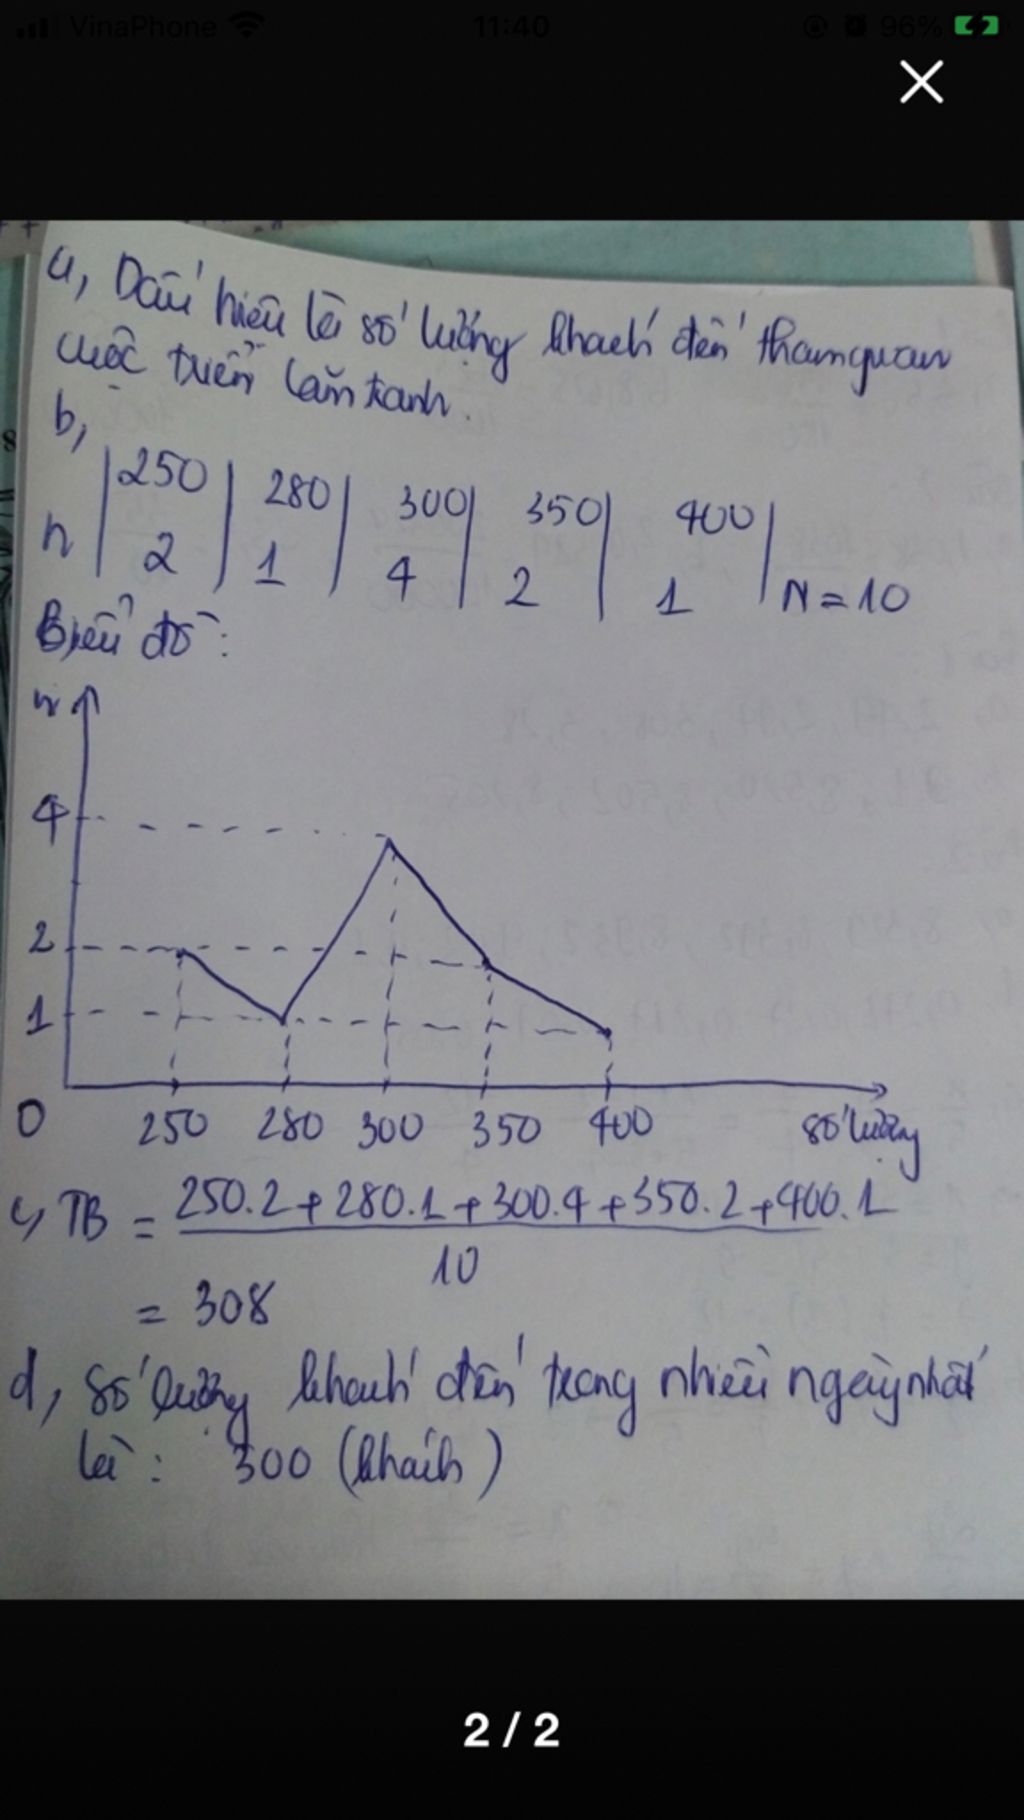 VinaPhone 11:40 96%
a, Dấu hiệu là số lượng khách đến tham quan
cuộc triển lãm tranh.
b,
250 280 300 350 400
n 2 1 4 2 1 N = 10
Biểu đồ:
n
4
2
1
0 250 280 300 350 400 số lượng
c, TB = 250.2+280.1+300.4+350.2+400.1
10
= 308
d, số lượng khách đến trong nhiều ngày nhất
là: 300 (khách)
2 / 2